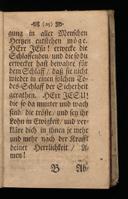 (25)
gung in aller Menschen
Hertzen entstehen möge.
HErr JEsu! erwecke die
Schlaffenden/ und die so du
erwecket hast bewahre für
dem Schlaff/ daß sie nicht
wieder in einen solchen To-
des-Schlaff der Sicherheit
gerathen. HErr JESU!
die so da munter und wach
sind/ die tröste/ und sey ihr
Lohn in Ewigkeit/ und ver-
kläre dich in ihnen je mehr
und mehr nach der Krafft
deiner Herrlichkeit/ A-
men!
B Ab-